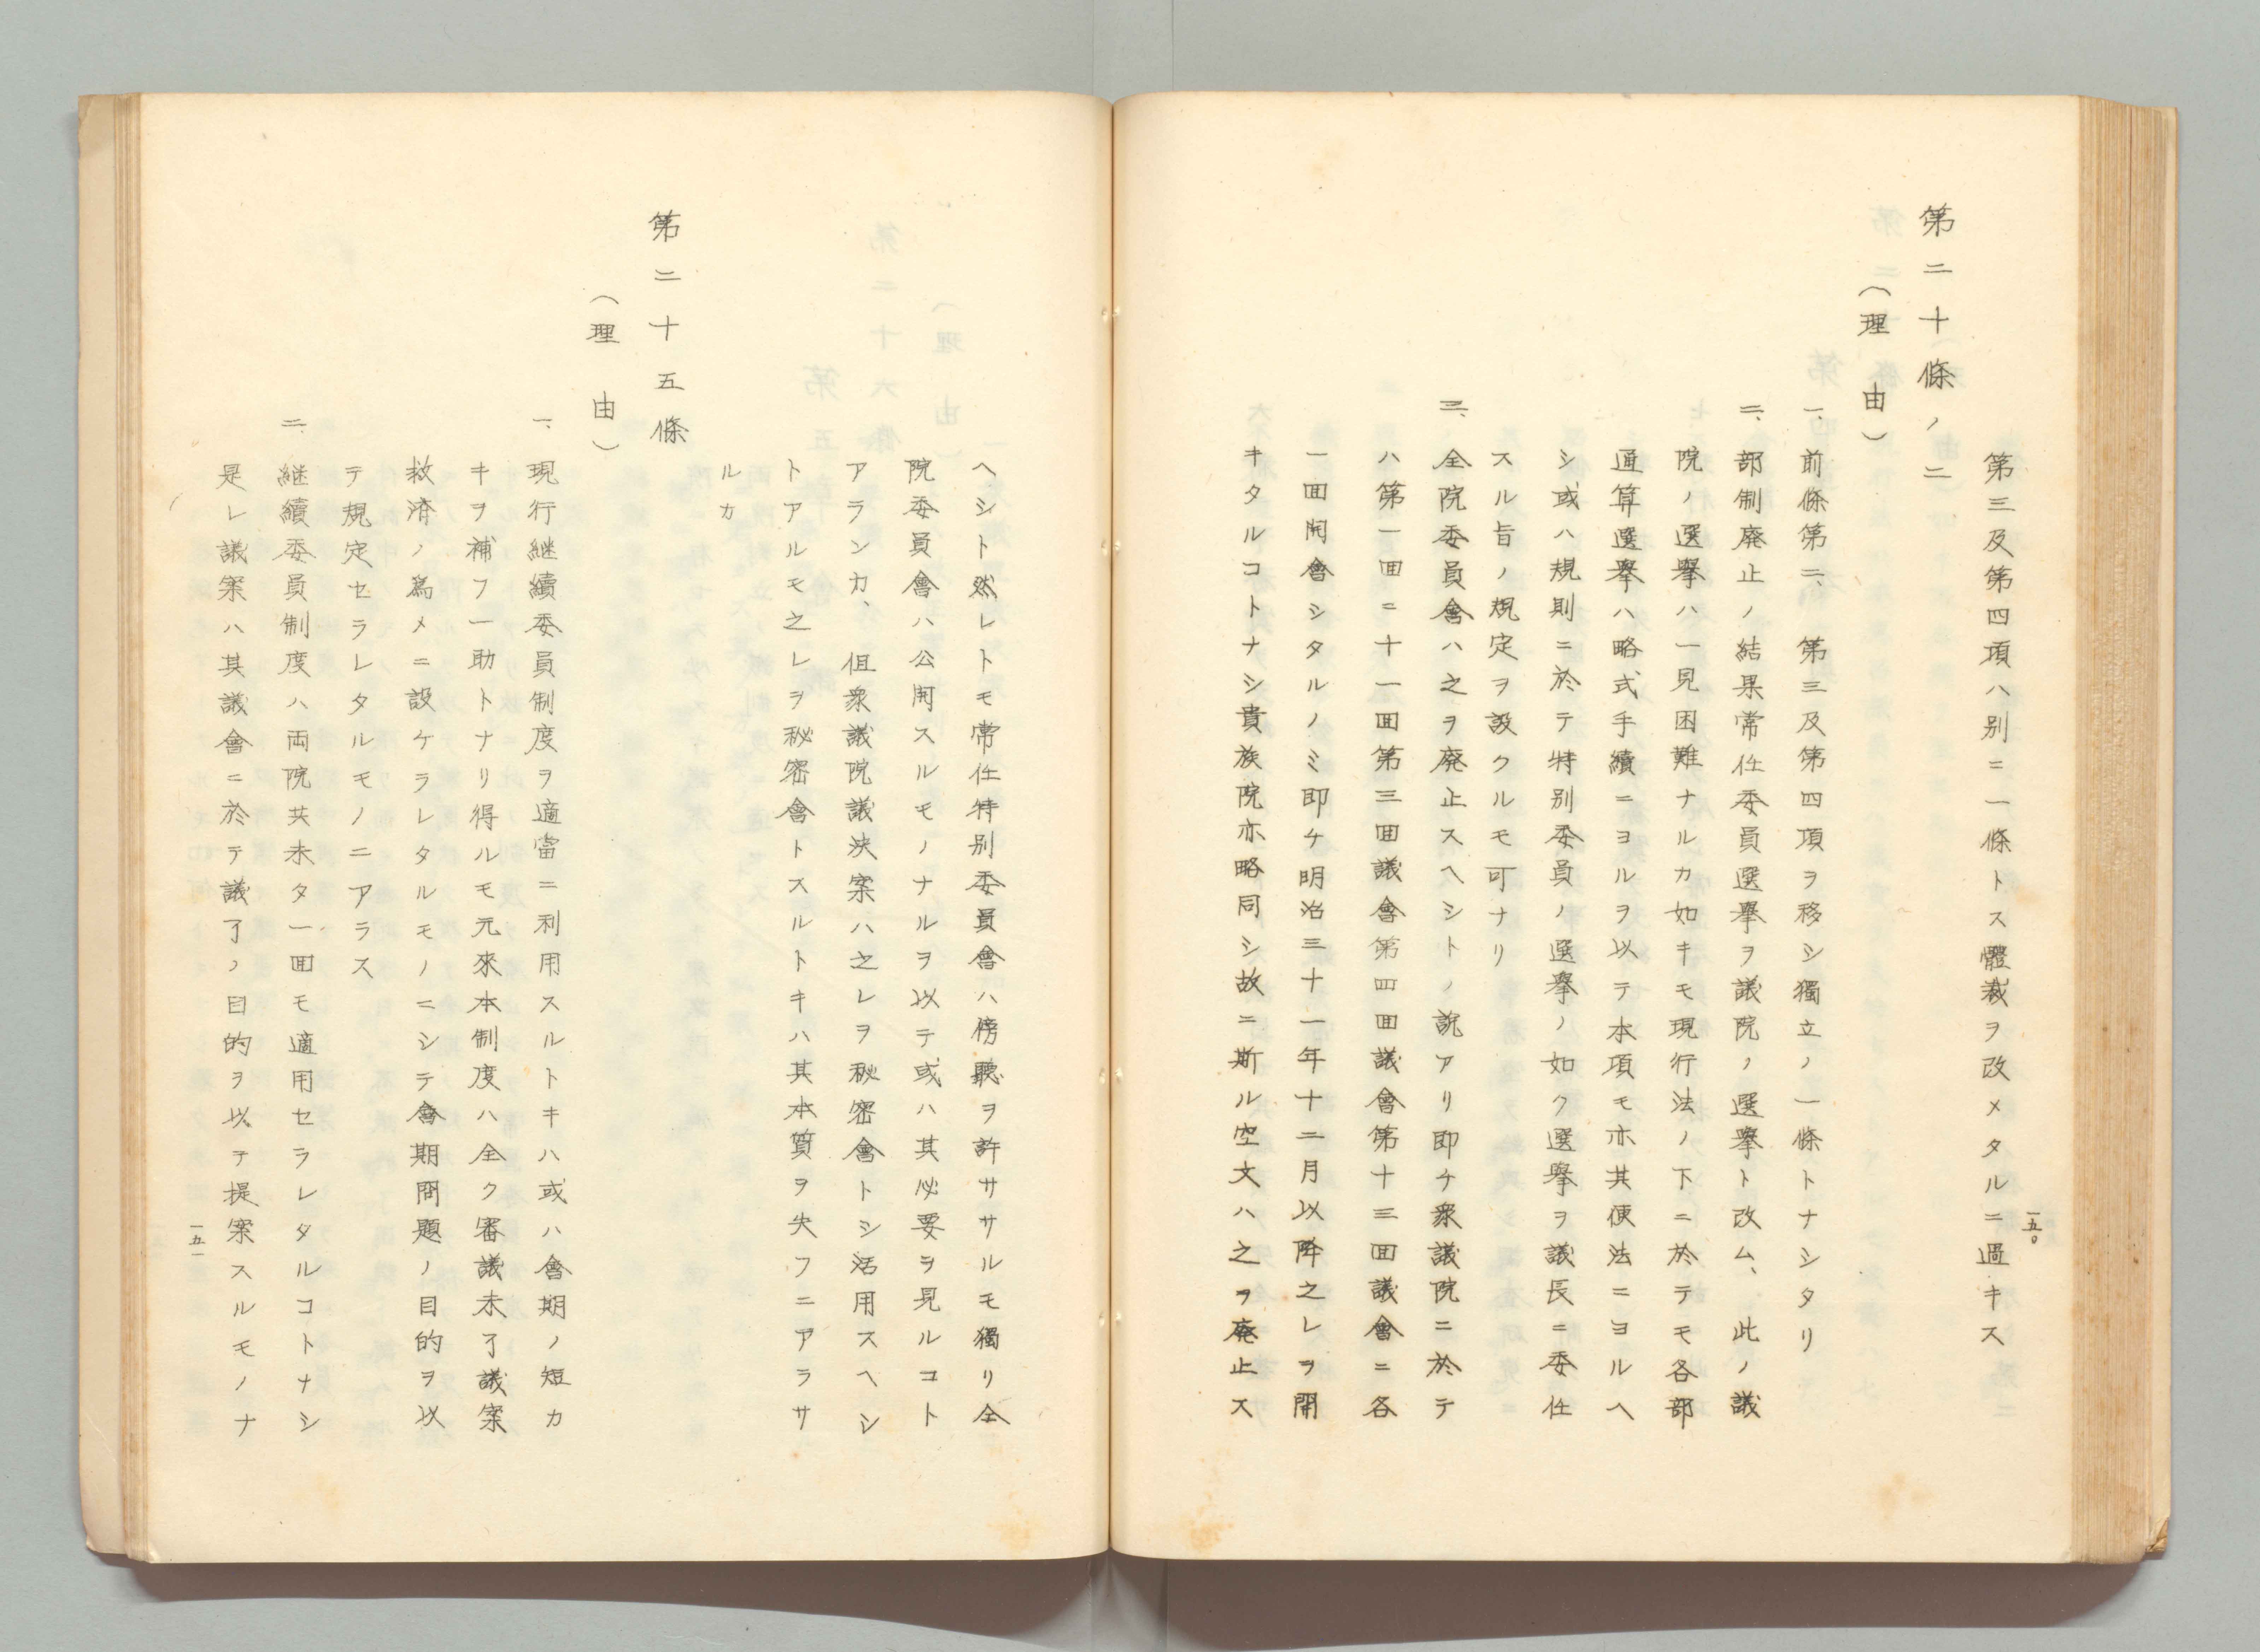 第三及第四項ハ別ニ一條トス體裁ヲ改メタルニ過キス
第二十條ノ二
（理由）
一、前條第二、第三及第四項ヲ移シ獨立ノ一條トナシタリ
二、部制廃止ノ結果常任委員選擧ヲ議院ノ選擧ト改ム、此ノ議
院ノ選擧ハ一見困難ナルカ如キモ現行法ノ下ニ於テモ各部
通算選擧ハ略式手續ニヨルヲ以テ本項モ亦其便法ニヨルヘ
シ或ハ規則ニ於テ特別委員ノ選擧ノ如ク選擧ヲ議長ニ委任
スル旨ノ規定ヲ設クルモ可ナリ
三、全院委員會ハ之ヲ廃止スヘシトノ説アリ即チ衆議院ニ於テ
ハ第一回ニ十一回第三回議會第四回議會第十三回議會ニ各
一回開會シタルノミ即チ明治三十一年十二月以降之レヲ開
キタルコトナシ貴族院亦略同シ故ニ斯ル空文ハ之ヲ廃止ス
一五〇
ヘシト然レトモ常任特別委員會ハ傍聽ヲ許ササルモ獨リ全
院委員會ハ公開スルモノナルヲ以テ或ハ其必要ヲ見ルコト
アランカ、但衆議院議決案ハ之レヲ秘密會トシ活用スヘシ
トアルモ之レヲ秘密會トスルトキハ其本質ヲ失フニアラサ
ルカ
第二十五條
（理由）
一、現行継續委員制度ヲ適當ニ利用スルトキハ或ハ會期ノ短カ
キヲ補フ一助トナリ得ルモ元來本制度ハ全ク審議未了議案
救濟ノ爲メニ設ケラレタルモノニシテ會期問題ノ目的ヲ以
テ規定セラレタルモノニアラス
二、継續委員制度ハ両院共未タ一回モ適用セラレタルコトナシ
是レ議案ハ其議會ニ於テ議了ノ目的ヲ以テ提案スルモノナ
一五一